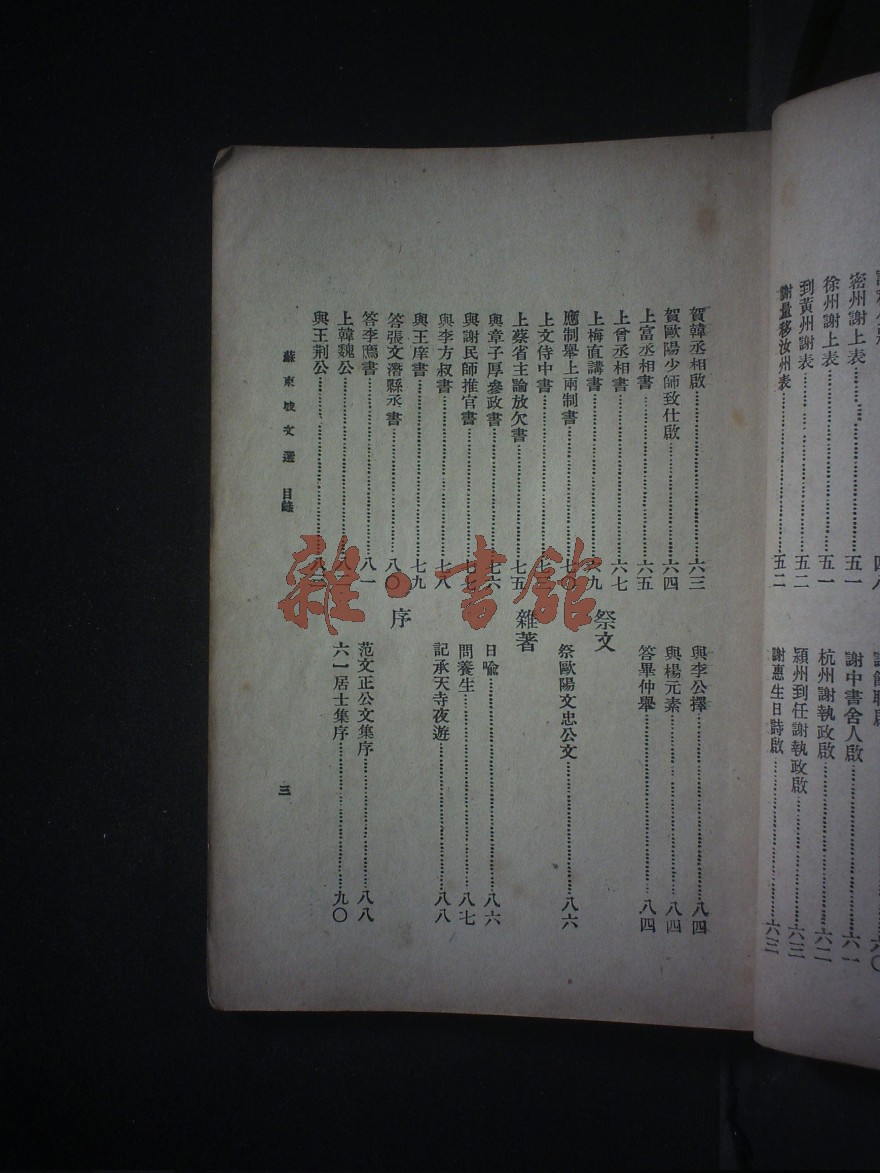 密州謝上表……五一
徐州謝上表……五一
到黃州謝表……五二
謝量移汝州表……五二
謝中書舍人啟……六一
杭州謝執政啟……六二
潁州到任謝執政啟……六三
謝惠生日詩啟……六三
賀韓丞相啟……六三
賀歐陽少師致仕啟……六四
上富丞相書……六五
上曾丞相書……六七
上梅直講書……六九
應制舉上兩制書
上文侍中書
上蔡省主論放欠書……七五
與章子厚參政書……七六
與謝民師推官書……七七
與李方叔書……七八
與王庠書……七九
答張文潛縣丞書……八〇
答李廌書……八一
上韓魏公
與王荊公
與李公擇……八四
與楊元素……八四
答畢仲舉……八四
祭文
祭歐陽文忠公文……八六
雜著
日喻……八六
問養生……八七
記承天寺夜遊……八八
序
范文正公文集序……八八
六一居士集序……九〇
蘇東坡文選 目錄
三
雜·書館